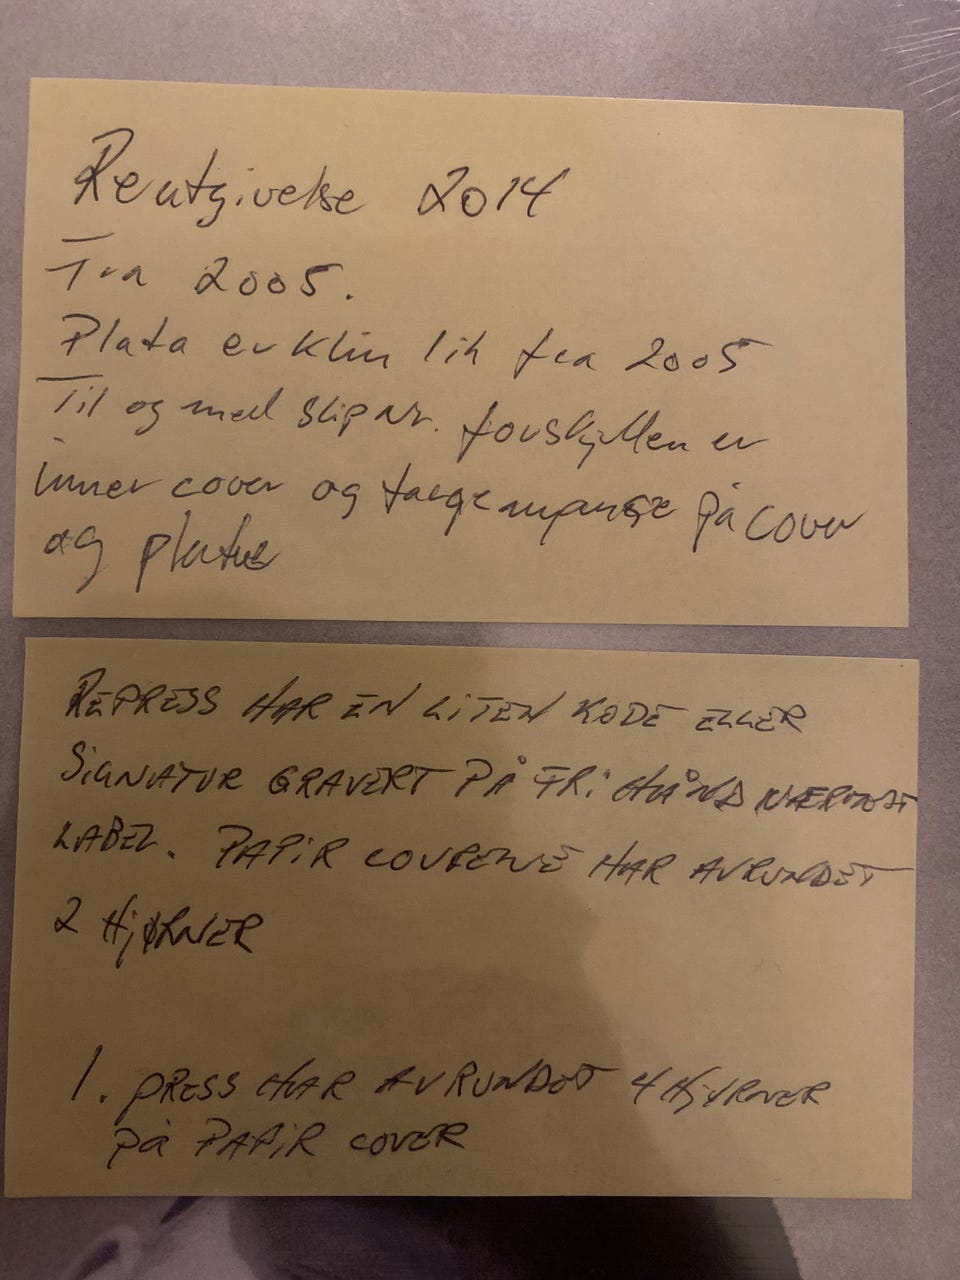 Reutgivelse 2014
Fra 2005.
Plata er klin lik fra 2005
Til og med skip nr. forskjellen er
inner cover og farge nyanse på cover
og platue
REPRESS HAR EN LITEN KODE ELLER
SIGNATUR GRAVERT PÅ FRI HÅND NÆRMST
LABEL. PAPIR COVERENE HAR AVRUNDET
2 HJØRNER
1. PRESS HAR AVRUNDET 4 HJØRNER
PÅ PAPIR COVER